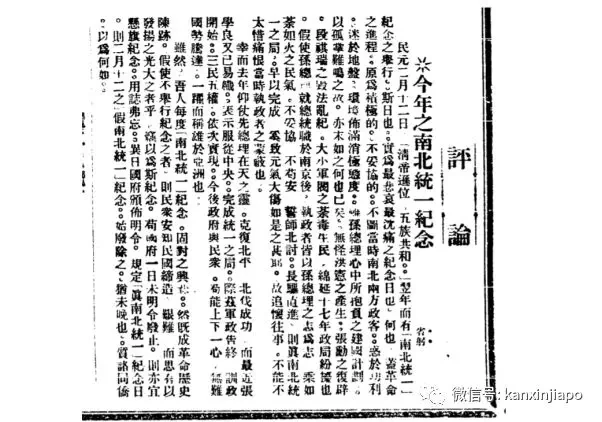 評論
※今年之南北統一紀念
省躬
民元二月十二日。「清帝遜位。五族共和。」翌年而有「南北統一」
紀念之舉行。斯日也。實爲最悲哀最沈痛之紀念日也。何也。蓋革命
之進程。原爲積極的。不妥協的。不圖當時南北兩方政客。惑於功利
。迷於地盤。環境佈滿消極態度。雖孫總理心中所抱負之建國計劃。
以孤掌難鳴之故。亦未如之何也已矣。無怪洪憲之產生。張勳之復辟
。段祺瑞之毀法亂紀。大小軍閥之荼毒生民。綿延十七年政局紛擾也
。假使孫總理已就總統職於南京後。執政者皆以孫總理之志爲志。乘如
荼如火之民氣。不妥協。不苟安。誓師北討。長驅直進。則眞南北統
一之局。早以完成。奚致元氣大傷如是之甚耶。故追懷往事。不能不
太惜痛恨當時執政者之蒙蔽也。
幸而去年仰仗先總理在天之靈。克復北平。北伐成功。而最近張
學良又已易幟。表示服從中央。完成統一之局。際茲軍政告終。訓政
開始。三民五權。依次實現。今後政府與民衆。苟能上下一心。無難
國勢騰達。一躍而稱雄於亞洲也。
雖然。吾人每度「南北統一」紀念。固對之興悲。然既成革命歷史
陳跡。假使不舉行紀念之者。則民衆安知民國締造之艱難。而思有以
發揚之光大之者乎。旗以爲斯紀念。苟國府一日未明令廢止。則亦宜
懸旗紀念。用誌弗忘。異日國府頒佈明令。規定「眞南北統一」紀念日
。則二月十二之「假南北統一」紀念。始廢除之。猶未晚也。質諸同僑
。以爲何如。
微信号: kanxinjiapo